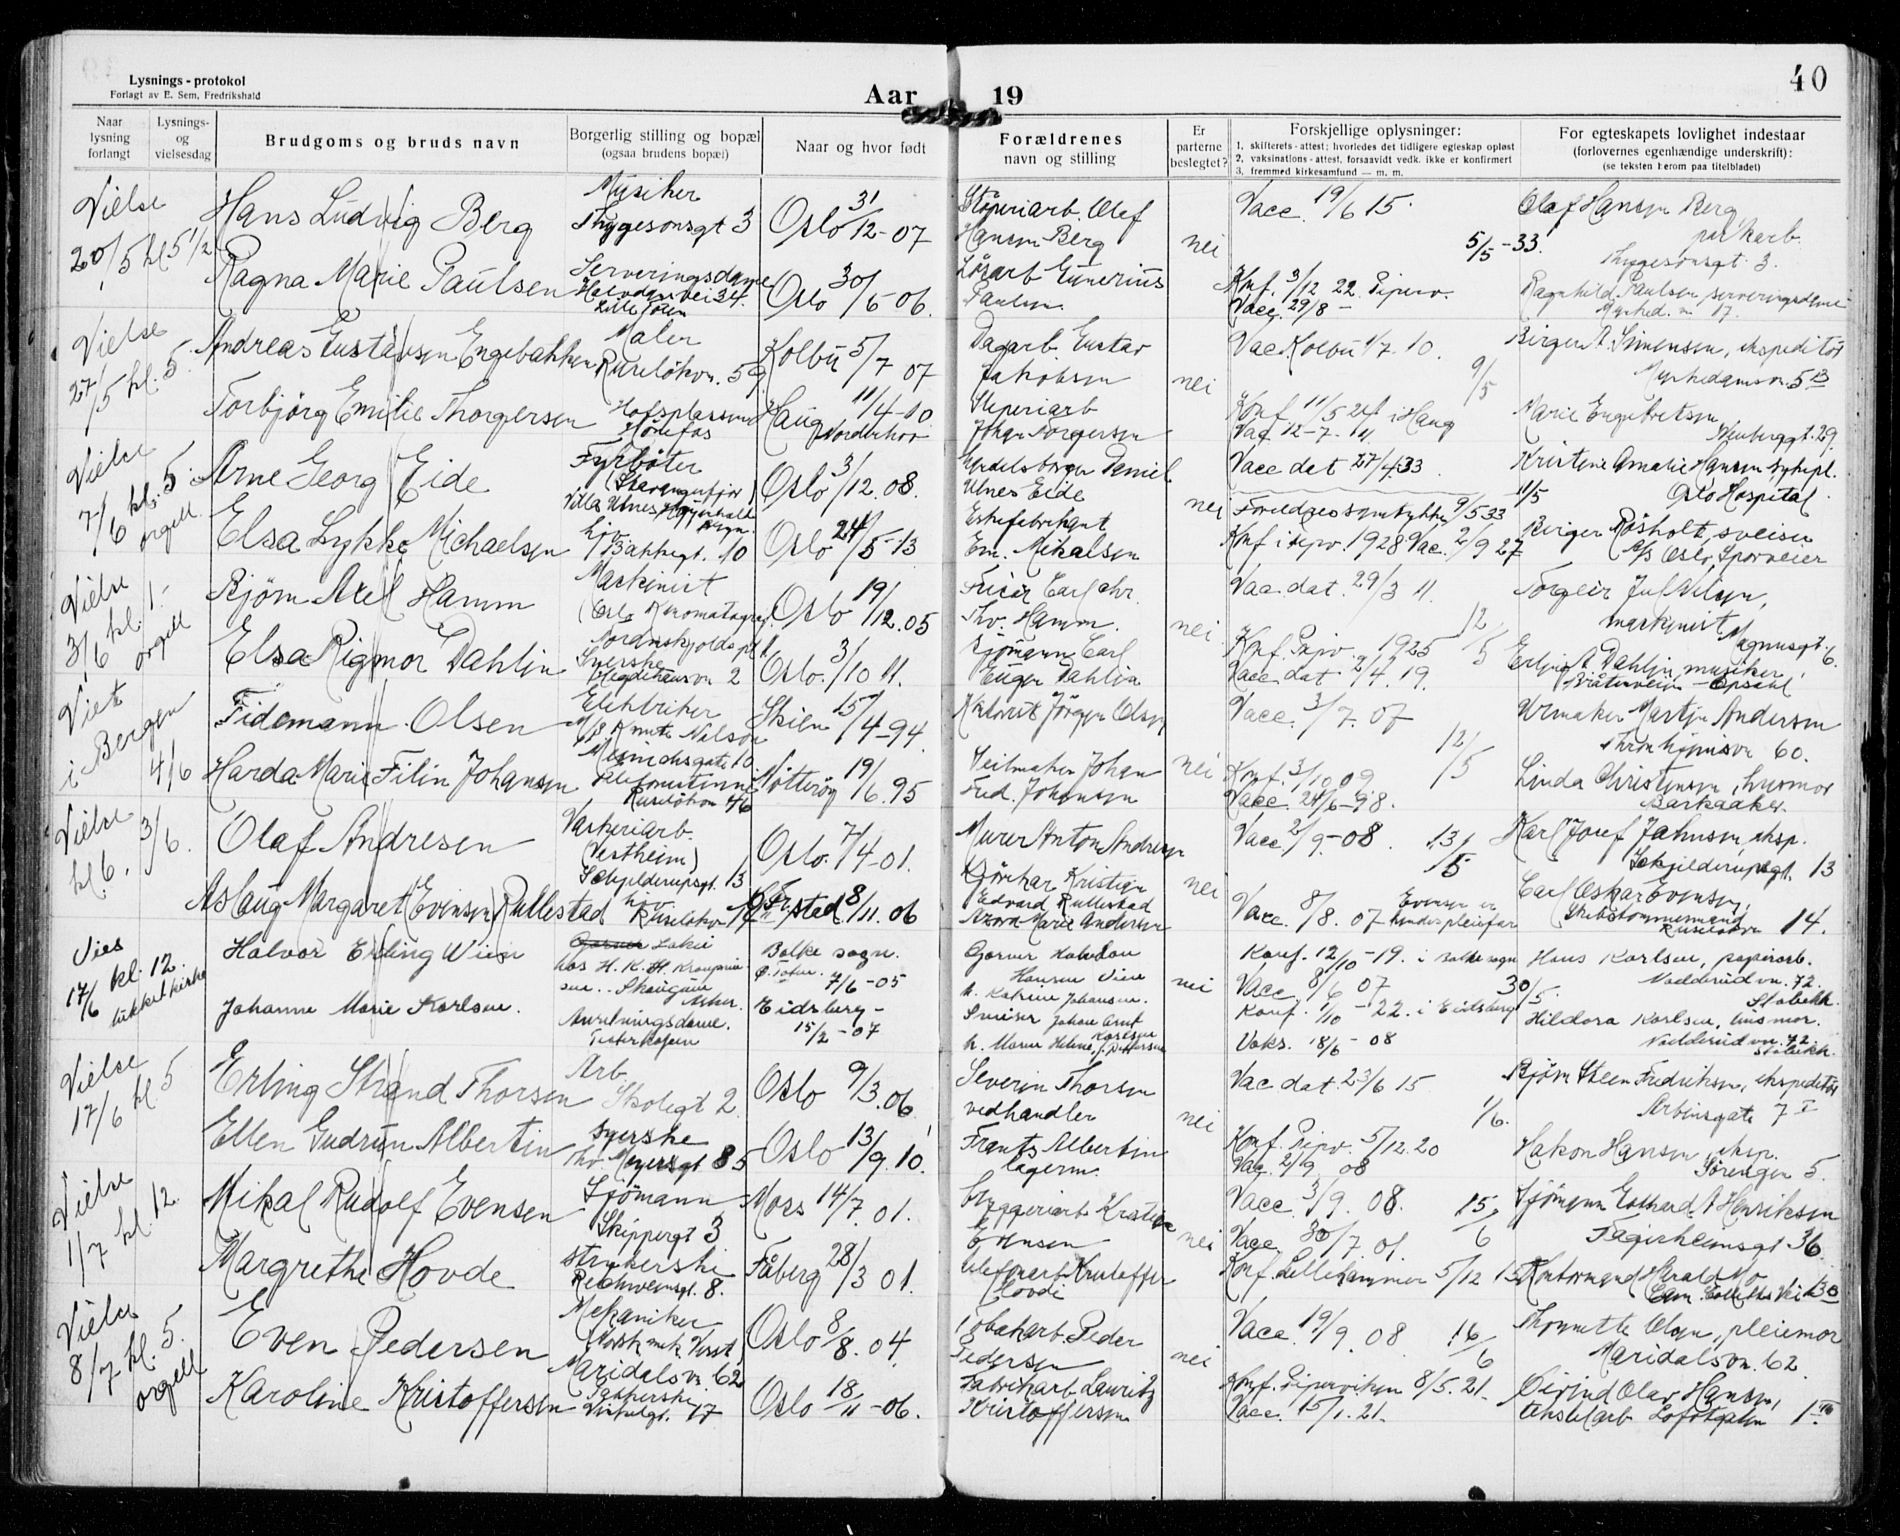 Lysnings - protokol
Forlagt av E. Sem, Fredrikshald
Aar 19
40
Naar lysning forlangt
Lysnings- og vielsesdag
Brudgoms og bruds navn
Borgerlig stilling og bopæl
(ogsaa brudens bopæl)
Naar og hvor født
Forældrenes
navn og stilling
Er parterne beslegtet?
Forskjellige oplysninger:
1. skifterets - attest; hvorledes det tidligere egteskap opløst
2. vaksinations - attest, forsaavidt vedk. ikke er konfirmert
3. fremmed kirkesamfund — m. m.
For egteskapets lovlighet indestaar
(forlovernes egenhændige underskrift):
(se teksten herom paa titelbladet)
Vielse
20/5 kl. 5 1/2
Hans Ludvig Berg
Musiker
Thygesonsgt 3
Oslo 31/12-07
Støperiarb. Olaf
Hansen Berg
nei
Vacc. 19/6 15.
5/5-33.
Olaf Hansen Berg
Thygesonsgt. 3.
Ragna Marie Paulsen
Serveringsdame
34.
Oslo 30/6 06.
Løsarb Gunerius
Paulsen
Konf. 3/12 22. Piperv.
Vacc. 29/8 -
Ragnhild Paulsen serveringsdame
17.
Vielse
27/5 kl: 5.
Andreas Gustavsen Engebakken
Maler
Ruseløkvn. 59
Kolbu 5/7 07
Dagarb. Gustav
Jakobsen
nei
Vac Kolbu 1/7. 10.
9/5
Birger A. Simensen, ekspeditør
Torbjørg Emilie Thorgersen
Hofsplassen
Hønefos
Haug 11/4-10
Norderhov
Johan Torgersen
Konf 11/5 24 i Haug
Marie Engebretsen
29.
Vielse
7/6 kl: 5.
orgell
Arne Georg Eide
Fyrbøter
(Stavangerfjor)
Oslo 3/12. 08.
Daniel
Ulnes Eide
nei
Vacc dat 27/4.33.
Kristine Amalie Hansen sykepl.
11/5
Oslo Hospital.
Elsa Lykke Michaelsen
Bakkegt. 10
Oslo 24/5-13
Em. Mikalsen
9/5 33
Konf i Piperv. 1928 Vac. 2/9 27
Birger Røsholt, sveiser
A/S Oslo Sporveier
Vielse
3/6 kl. 1.-
orgell
Bjørn Axel Hamm
Maskinist
Oslo 19/12. 05
Frisør Carl Chr.
Thv. Hamm.
nei
Vac. dat. 29/3 11.
12/5
Torgeir Jul Nilsen,
maskinist
Magnusgt. 6.
Elsa Rigmor Dahlin
Syerske
2
Oslo. 3/10 11.
Sjømann Carl
Eugen Dahlin
Konf. Pipv. 1925
Vacc. dat 2/4. 19.
Erling A Dahlin, musiker,
Viet
i Bergen
4/6
Tidemann Olsen
Elektriker
M/S Knute Nelson
Skien 15/4-94
Jørgen Olsen
nei
Vacc. 3/7. 07
12/5
Urmaker Martin Andersen
60.
Harda Marie Filin Johansen
Telefonistinne
Ruseløkvn 46
Nøtterøy 19/6. 95
Seilmaker Johan
Fred. Johansen
Konf. 3/10 09
Vacc. 24/6-98.
Linda Christensen, husmor
Barkaaker.
Vielse
kl. 6. 3/6.
Olaf Andresen
Vaskeriarb.
(Vestheim)
Schjelderupsgt. 13
Oslo. 7/4-01.
Murer Anton Andresen
nei
Vacc. 2/9.-08.
13/5
Karl Josef Jahnsen eksp.
Schjelderupsgt. 13
Aslaug Margaret (Evensen) Rullestad
Ruseløkv.
Fr.stad 8/11. 06
Kristian
Edvard Rullestad
Marie Andersen
Vacc. 8/8. 07
Evensen er
hendes pleiefar
Carl Oskar Evensen,
Skibstømmermand
Ruseløkvn 14.
Vies
17/6 kl: 12.
lukket kirke
Halvor Erling Wien
Lakei
hos H. K. H. Kronprin-
sen. Skaugum
Asker.
Balke sogn.
Ø. Toten. 7/6-05
Hansen Vien
h. Katrine Johansen.
nei
Konf. 12/10-19. i Balke sogn
Vacc. 8/6 07
30/5.
Hans Karlsen, papirarb.
Nadderud vn. 72.
Stabekk.
Johanne Marie Karlsen.
Anretningsdame.
Eidsberg-
15/2-07
Sveiser Johan Arnt
Karlsen
h. Maren Helene f. Pettersen
Konf. 1/10-22. i Eidsberg
Vaks. 18/6-08
Hildora Karlsen, husmor.
Nadderud vn. 72.
Stabekk.
Vielse
17/6 kl. 5
Erling Strand Thorsen
Arb
Skolegt 2.
Oslo 9/3. 06
Severin Thorsen
vedhandler
nei
Vac dat 23/6 15
1/6.
Bjørn Steen Fredriksen, ekspeditør
Arbinsgate 7 I
Ellen Gudrun Albertin
Syerske
Thv. Meyersgt 85
Oslo 13/9. 10.
Frants Albertin
lagerm.
Konf. Pipv. 5/12. 20
Vac. 2/9 08
Hakon Hansen, eksp.
Sørengen 5.
Vielse
1/7 kl. 12.
Mikal Rudolf Evensen
Sjømann
Skippergt 3
Moss 14/7. 01.
Bryggeriarb Kristian
Evensen
nei
Vacc. 3/9. 08.
15/6
Sjømann Edthard A Henriksen
Fagerheimsgt 36.
Margrethe Hovde
strykerske
Reichweinsgt. 8.
Fåberg 28/3 01.
Kristoffer
Hovde
Vacc. 30/7. 01.
Konf. Lillehammer 5/12 15
Kontormand Harald Mo
Cam. Colletts Vei
Vielse
8/7 kl: 5.
orgell
Even Pedersen
Mekaniker
Maridalsvn. 62
Oslo 8/8. 04.
Tobakarb. Peder
Pedersen
nei
Vacc. 19/9. 08.
16/6
Thonette Olsen, pleiemor
Maridalsvn. 62
Karoline Kristoffersen
Pakkerske
17
Oslo 18/11-06.
Fabrikarb. Lauritz
Kristoffersen
Konf. Piperviken 8/5. 21.
Vacc. 15/1. 21.
Øivind Olav Hansen,